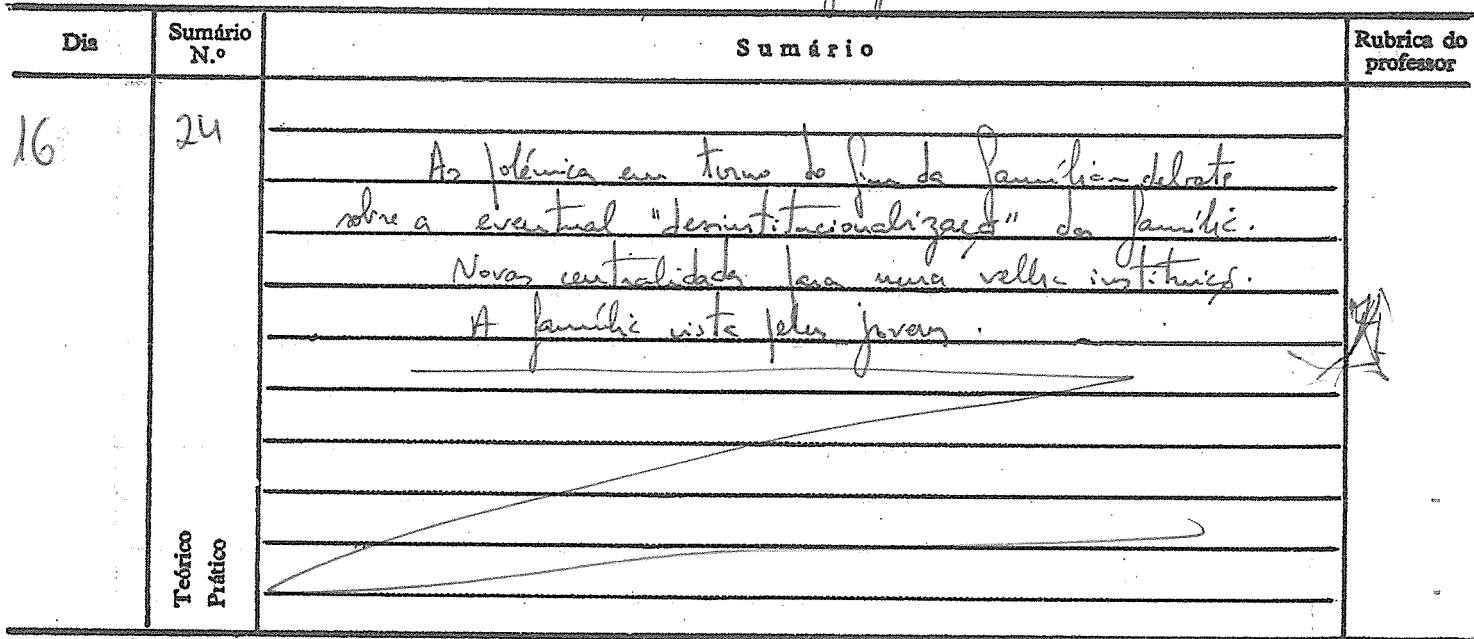 Dia
Sumário N.º
Sumário
Rubrica do professor
16
24
As polémicas em torno do fim da família: debate
sobre a eventual "desinstitucionalização" da família.
Novas centralidades para uma velha instituição.
A família vista pelos jovens.
Teórico
Prático